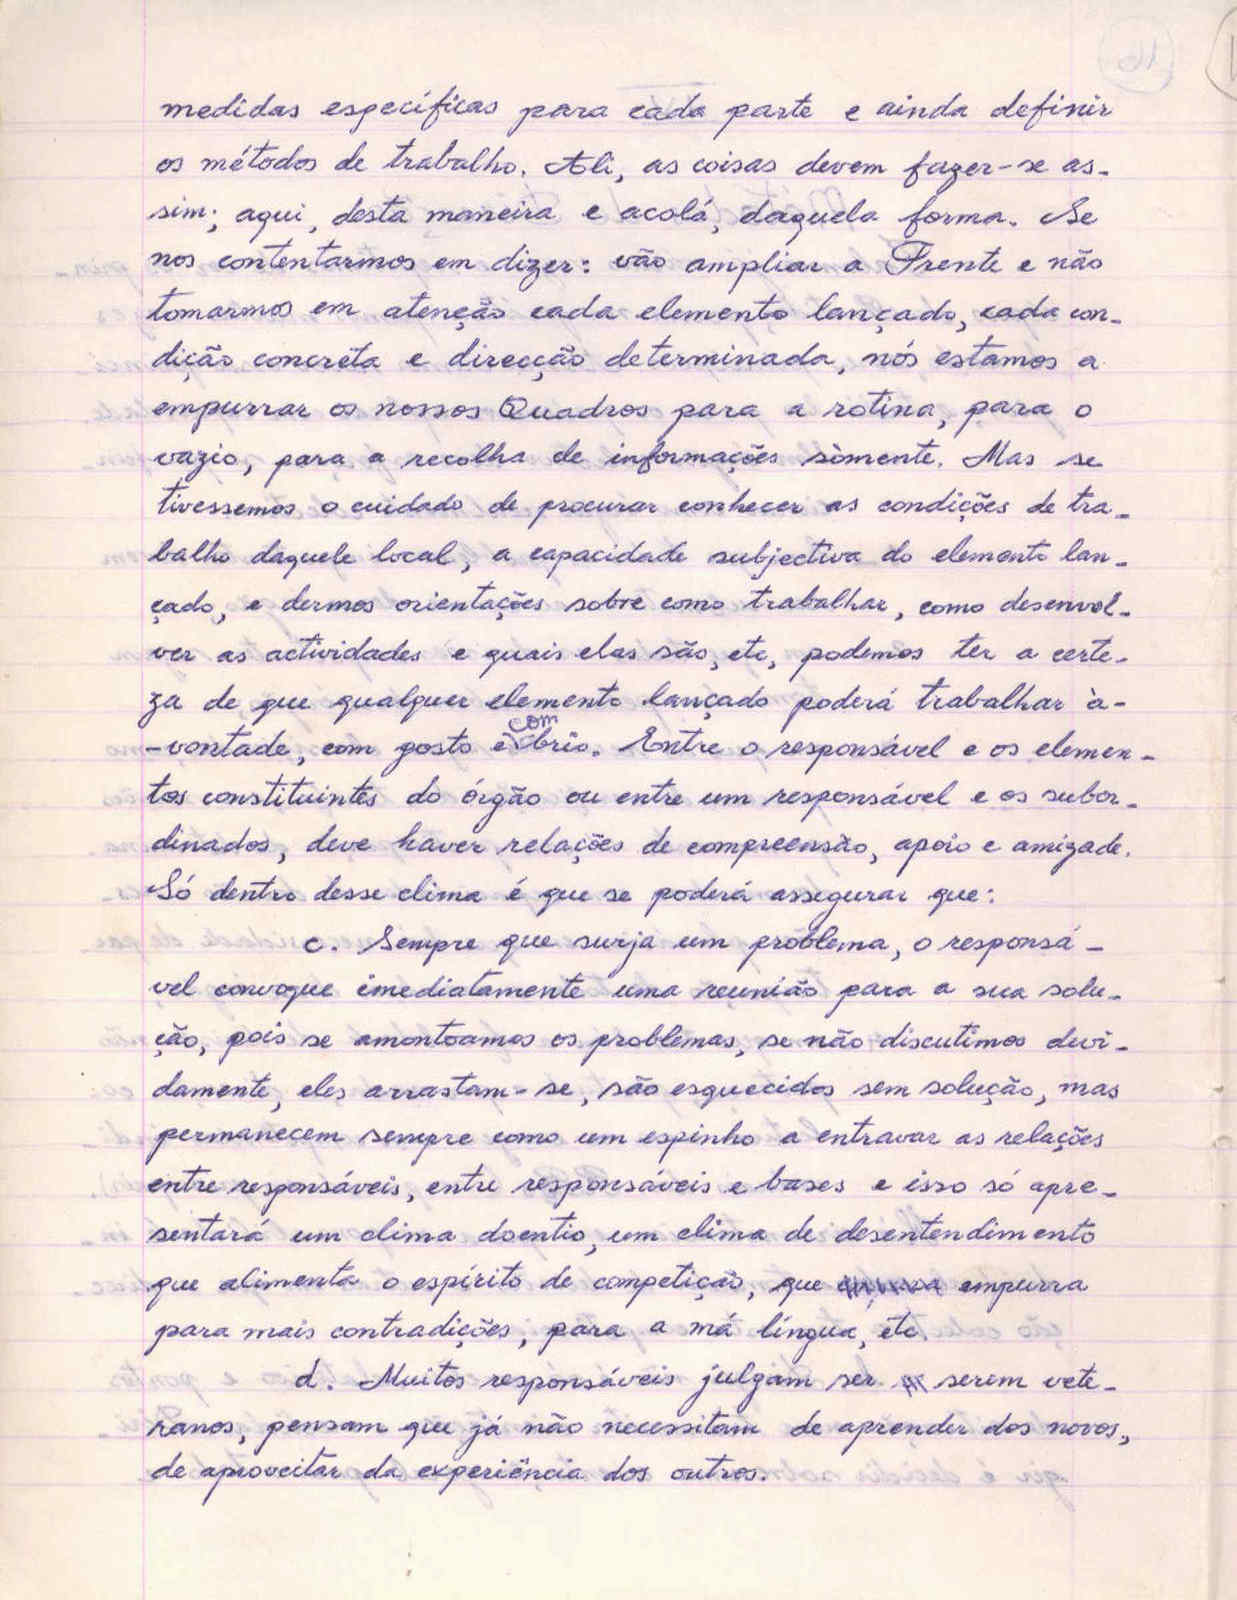 medidas específicas para cada parte e ainda definir
os métodos de trabalho. Ali, as coisas devem fazer-se as-
sim; aqui, desta maneira e acolá, daquela forma. Se
nos contentarmos em dizer: vão ampliar a Frente e não
tomarmos em atenção cada elemento lançado, cada con-
dição concrèta e direcção determinada, nós estamos a
empurrar os nossos Quadros para a rotina, para o
vazio, para a recolha de informações sòmente. Mas se
tivessemos o cuidado de procurar conhecer as condições de tra-
balho daquele local, a capacidade subjectiva do elemento lan-
çado, e dermos orientações sobre como trabalhar, como desenvol-
ver as actividades e quais elas são, etc, podemos ter a certe-
za de que qualquer elemento lançado poderá trabalhar à-
-vontade, com gosto e com brio. Entre o responsável e os elemen-
tos constituintes do órgão ou entre um responsável e os subor-
dinados, deve haver relações de compreensão, apoio e amizade.
Só dentro desse clima é que se poderá assegurar que:
c. Sempre que surja um problema, o responsá-
vel convoque imediatamente uma reunião para a sua solu-
ção, pois se amontoamos os problemas, se não discutimos devi-
damente, eles arrastam-se, são esquecidos sem solução, mas
permanecem sempre como um espinho a entravar as relações
entre responsáveis, entre responsáveis e bases e isso só apre-
sentará um clima doentio, um clima de desentendimento
que alimenta o espírito de competição, que empurra
para mais contradições, para a má língua, etc
d. Muitos responsáveis julgam ser serem vete-
ranos, pensam que já não necessitam de aprender dos novos,
de aproveitar da experiência dos outros.